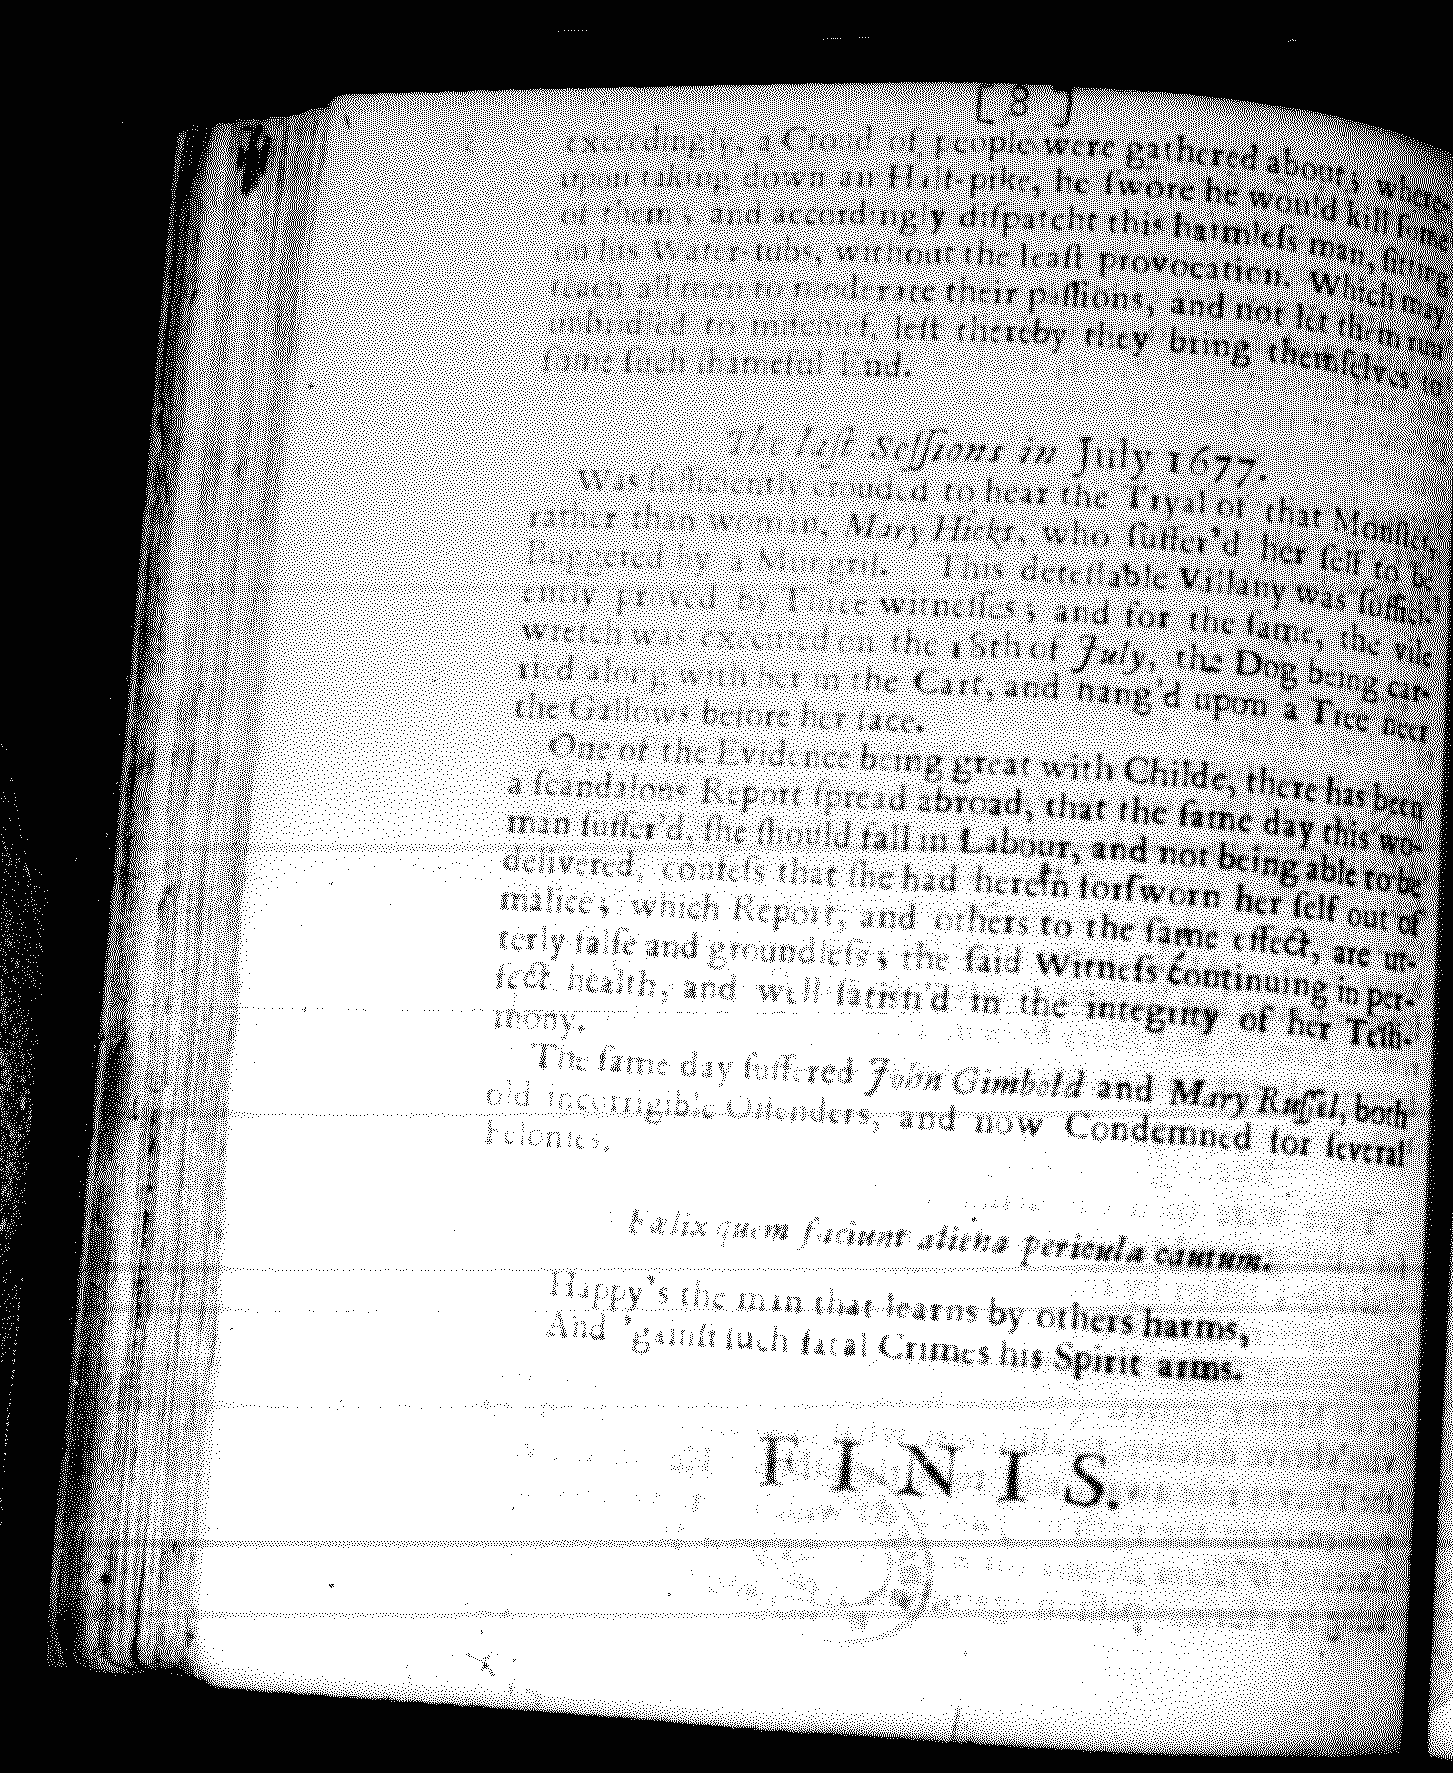 [ 8 ]
exceedingly, a Croud of people were gathered about; where-
upon taking down an Half-pike, he ſwore he would kill ſome
of them; and accordingly diſpatcht this harmleſs man, ſitting
on his Water-tubs, without the leaſt provocation. Which may
teach all men to moderate their paſſions, and not let them run
leſt thereby they bring themſelves to
ſome ſuch ſhameful End.
The laſt Seſſions in July 1677.
Was ſufficiently crouded to hear the Tryal of that Monſter,
rather than woman, Mary Hicks, who ſuffer'd her ſelf to be
by a Mungril. This deteſtable Villany was ſuffici-
ently proved by Three witneſſes; and for the ſame, the vile
wretch was executed on the 16th of July, the Dog being car-
ried along with her in the Cart, and hang'd upon a Tree neer
the Gallows before her face.
One of the Evidence being great with Childe, there has been
a ſcandalous Report ſpread abroad, that the ſame day this wo-
man ſuffer'd, ſhe ſhould fall in Labour, and not being able to be
delivered, confeſs that ſhe had herein forſworn her ſelf out of
malice; which Report, and others to the ſame effect, are ut-
terly falſe and groundleſs; the ſaid Witneſs continuing in per-
fect health, and well ſatisfi'd in the integrity of her Teſti-
mony.
The ſame day ſuffered John Gimbold and Mary Ruſſil, both
old incorrigible Offenders, and now Condemned for ſeveral
Felonies.
Fælix quem faciunt aliena pericula cautum.
Happy's the man that learns by others harms,
And 'gainſt ſuch fatal Crimes his Spirit arms.
F I N I S.